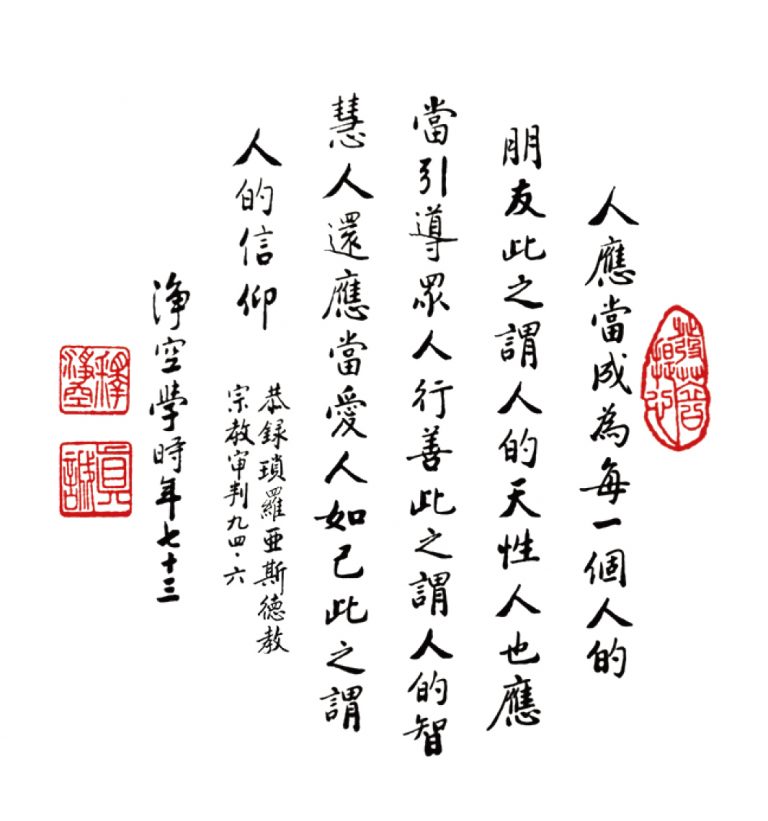 人應當成為每一個人的
朋友此之謂人的天性人也應
當引導眾人行善此之謂人的智
慧人還應當愛人如己此之謂
人的信仰
恭錄瑣羅亞斯德教
宗教审判九四·六
淨空學時年七十三
釋淨空
真誠